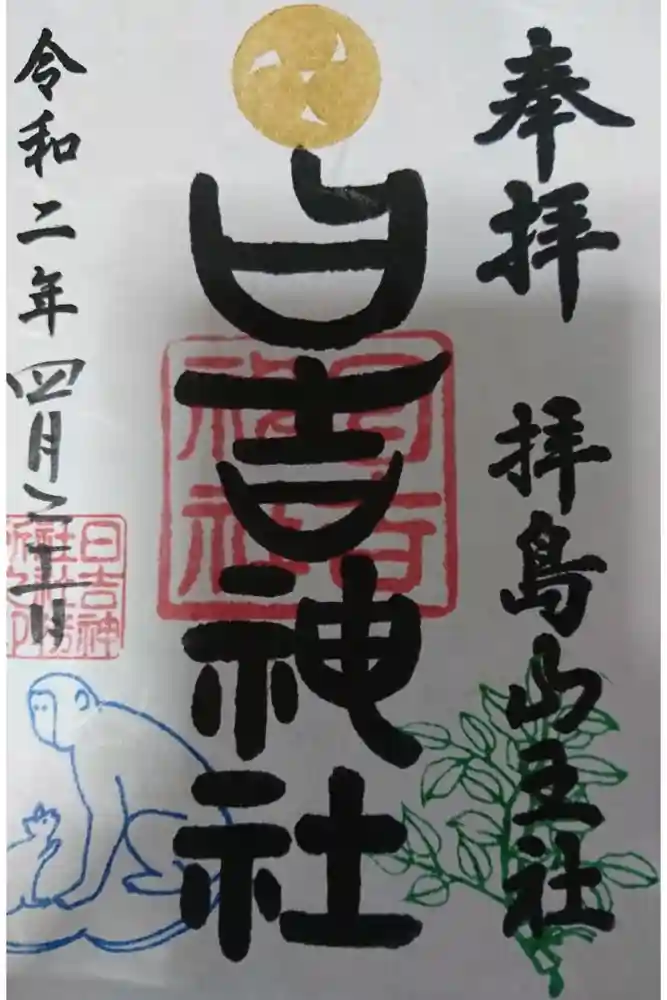 奉拝 拝島山王社
日吉神社
日吉
神社
令和二年四月二十一日
日吉神
社社務
所之印